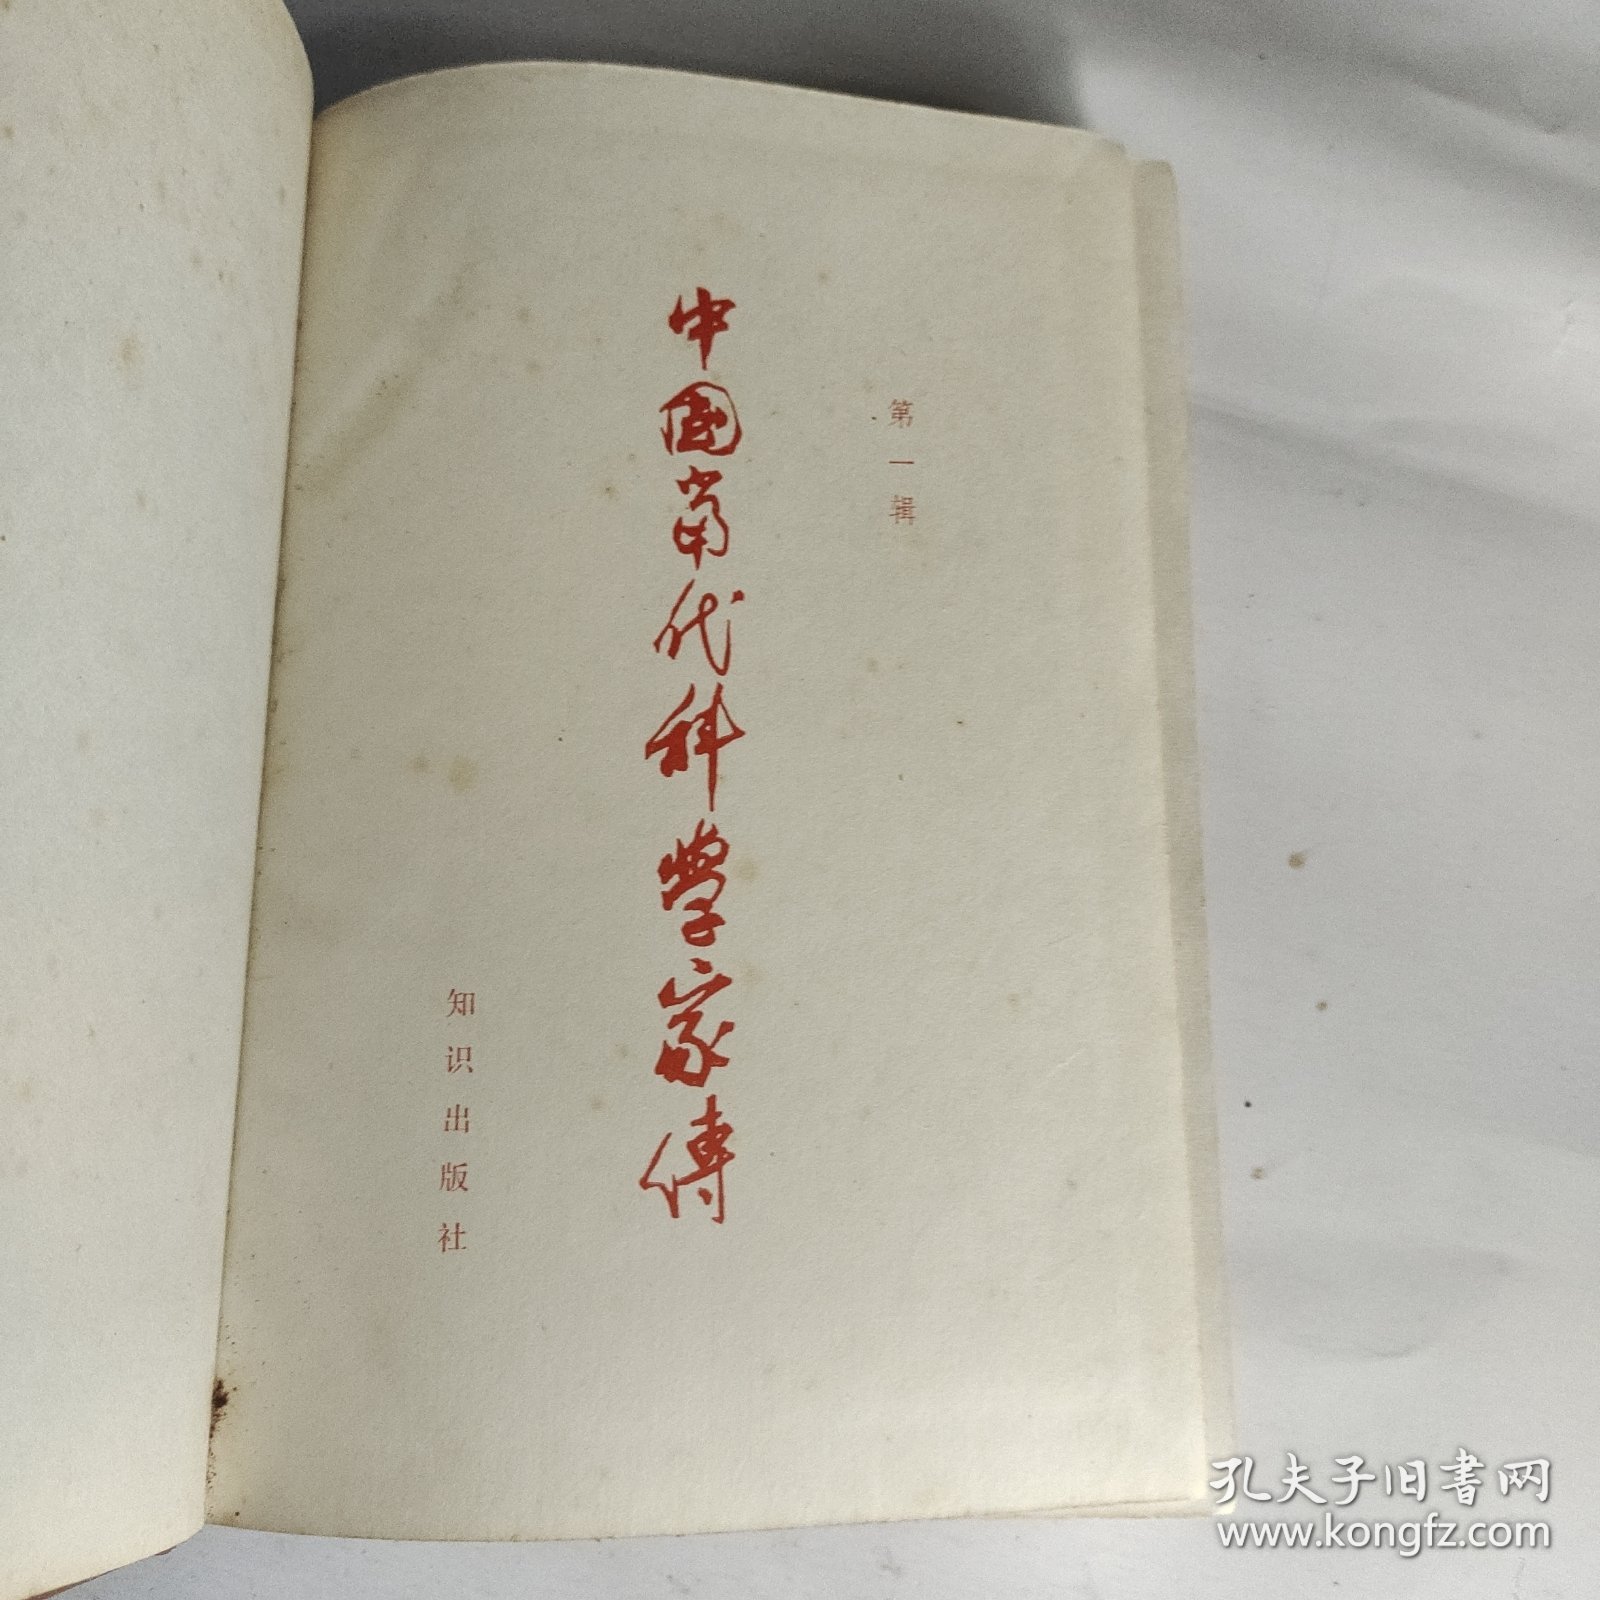 第一辑
中國當代科学家傳
知识出版社
孔夫子旧书网
www.kongfz.com